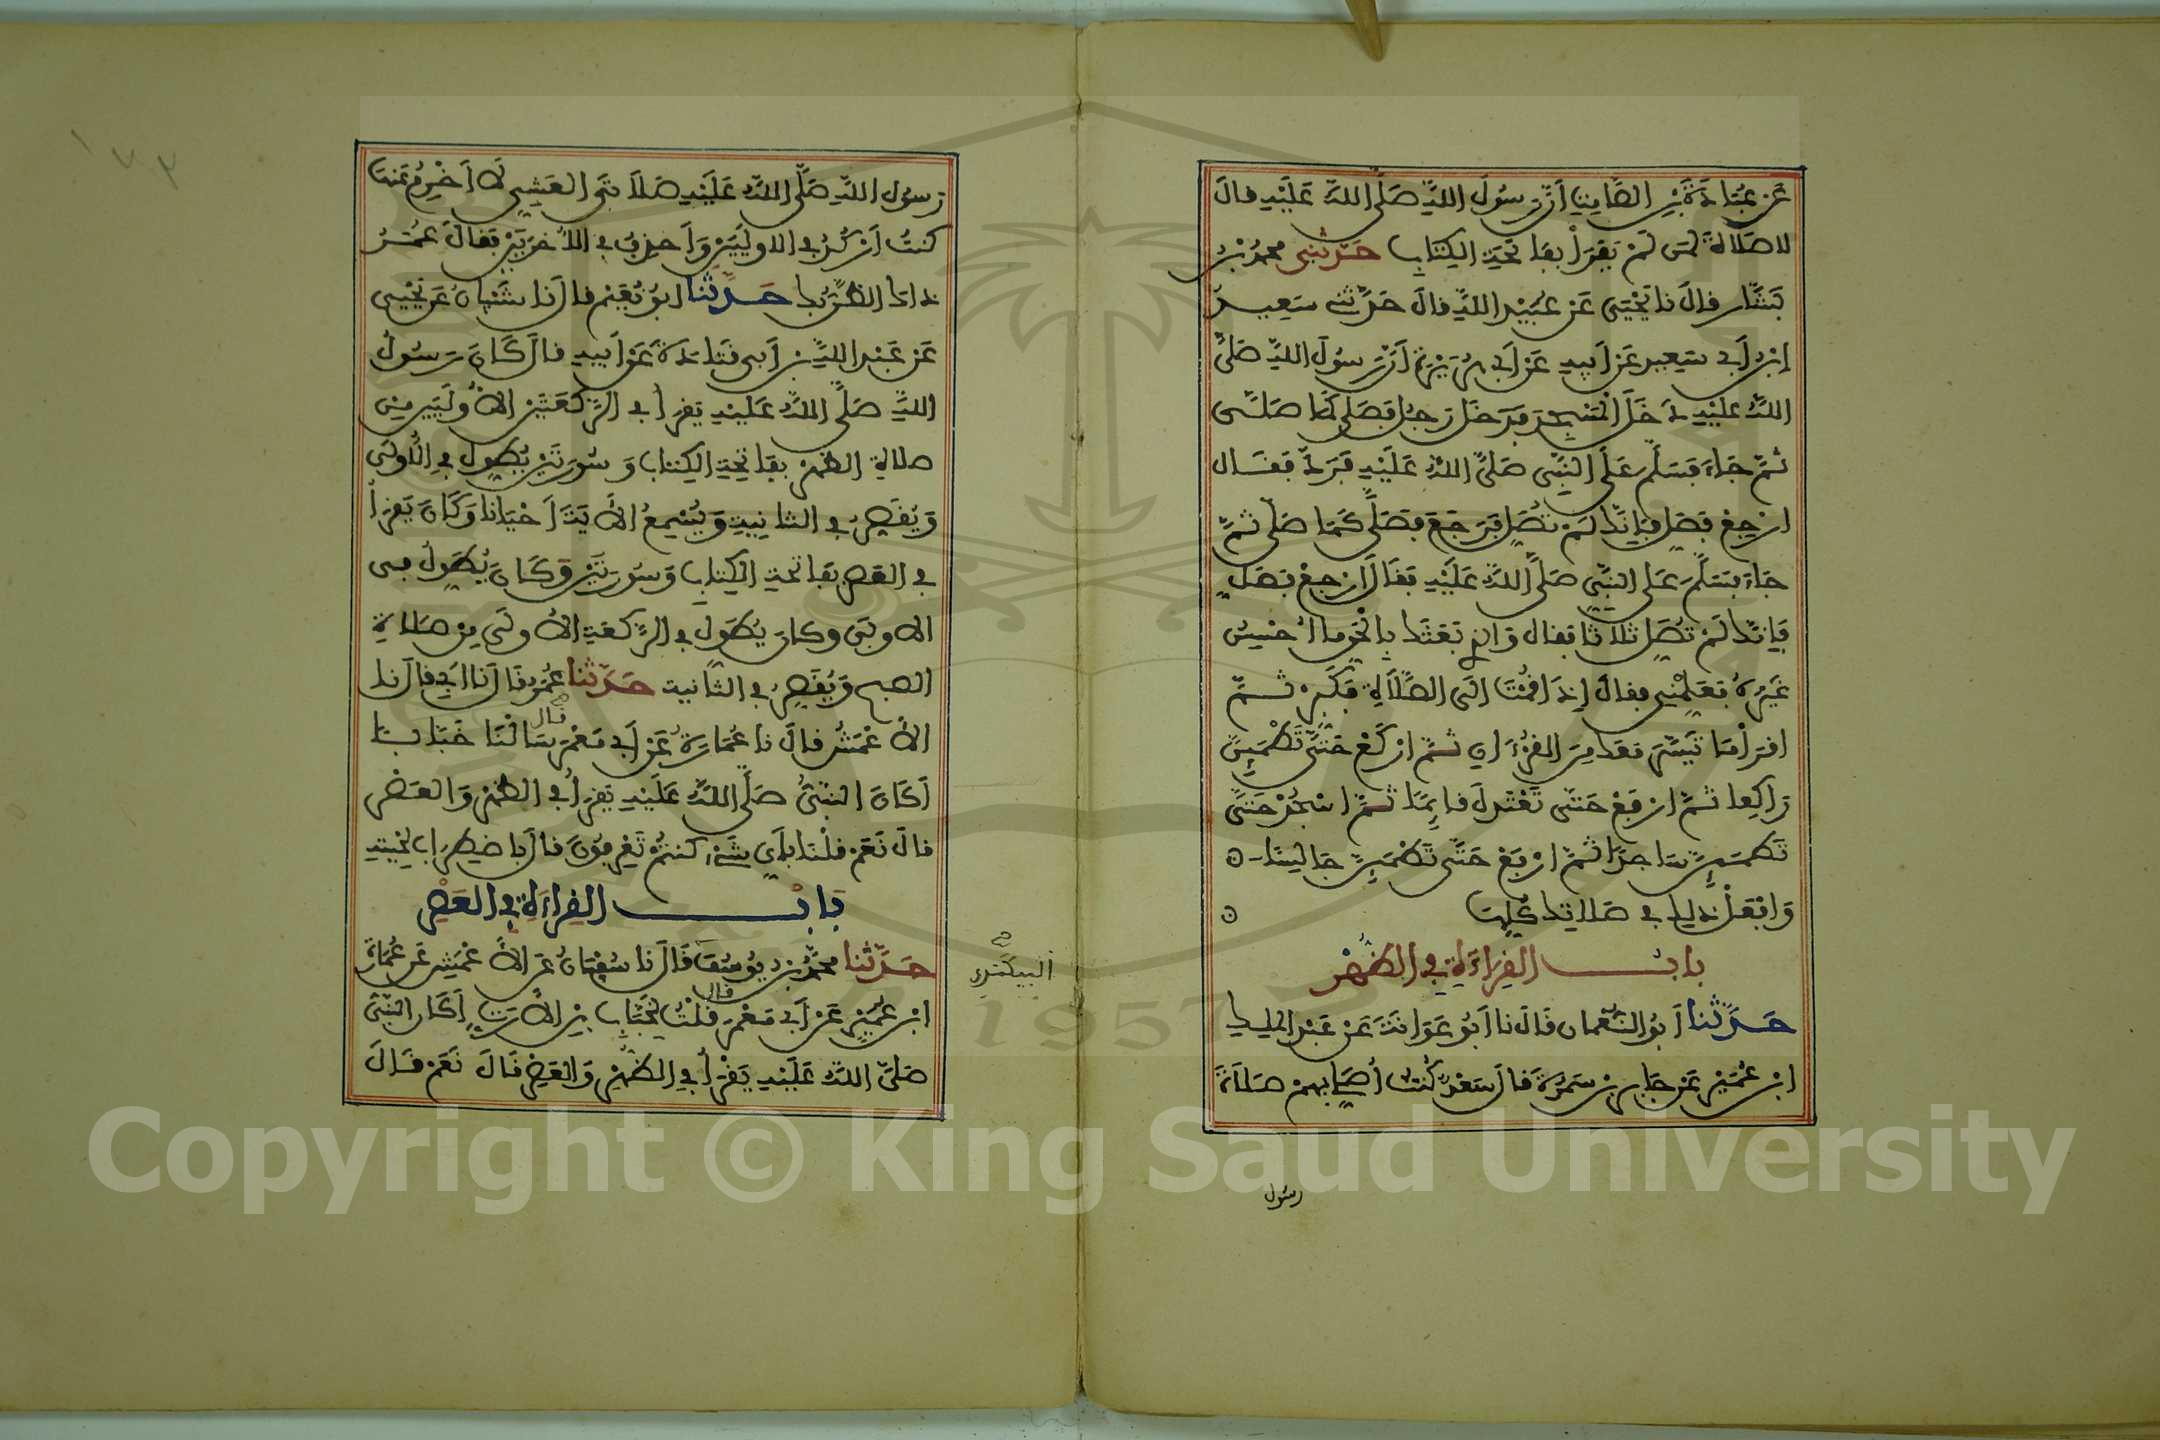 عن عبادة بن الصامت أن رسول الله صلى الله عليه قال
لا صلاة لمن لم يقرأ بفاتحة الكتاب حدثني محمد بن
بشار قال نا يحيى عن عبيد الله قال حدثني سعيد
ابن أبي سعيد عن أبيه عن أبي هريرة أن رسول الله صلى
الله عليه دخل المسجد فدخل رجل فصلى كما صلى
ثم جاء فسلم على النبي صلى الله عليه فرد فقال
ارجع فصل فإنك لم تصل فرجع فصلى كما صلى ثم
جاء فسلم على النبي صلى الله عليه فقال ارجع فصل
فإنك لم تصل ثلاثا فقال والذي بعثك بالحق ما أحسن
غيره فعلمني فقال إذا قمت إلى الصلاة فكبر ثم
اقرأ ما تيسر معك من القرءان ثم اركع حتى تطمئن
راكعا ثم ارفع حتى تعتدل قائما ثم اسجد حتى
تطمئن ساجدا ثم ارفع حتى تطمئن جالسا
وافعل ذلك في صلاتك كلها
باب القراءة في الظهر
حدثنا أبو النعمان قال نا أبو عوانة عن عبد الملك
ابن عمير عن جابر بن سمرة قال سعد كنت أصلي بهم صلاة
رسول
رسول الله صلى الله عليه صلاتي العشي لا أخرم عنها
كنت أركد في الاوليين وأحذف في الأخريين فقال عمر
ذاك الظن بك حدثنا ابو نعيم قال نا شيبان عن يحيى
عن عبد الله بن أبي قتادة عن أبيه قال كان رسول
الله صلى الله عليه يقرأ في الركعتين الأوليين من
صلاة الظهر بفاتحة الكتاب وسورتين يطول في الأولى
ويقصر في الثانية ويسمع الأية أحيانا وكان يقرأ
في العصر بفاتحة الكتاب وسورتين وكان يطول في
الأولى وكان يطول في الركعة الأولى من صلاة
الصبح ويقصر في الثانية حدثنا عمر قال نا أبي قال نا
الأعمش قال نا عمارة عن أبي معمر قال سألنا خبابا
أكان النبي صلى الله عليه يقرأ في الظهر والعصر
قال نعم قلنا بأي شيء كنتم تعرفون قال باضطراب لحيته
باب القراءة في العصر
حدثنا محمد بن يوسف قال نا سفيان عن الأعمش عن عمارة
البيكندي
ابن عمير عن أبي معمر قال قلت لخباب بن الأرت أكان النبي
صلى الله عليه يقرأ في الظهر والعصر قال نعم قال
١٧٣
1957
Copyright © King Saud University